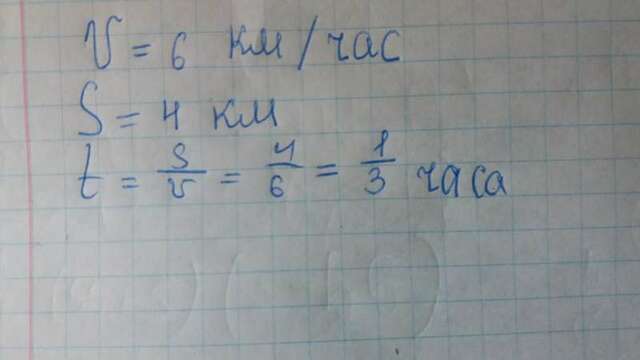 V = 6 км/час
S = 4 км
t = S/V = 4/6 = 1/3 часа